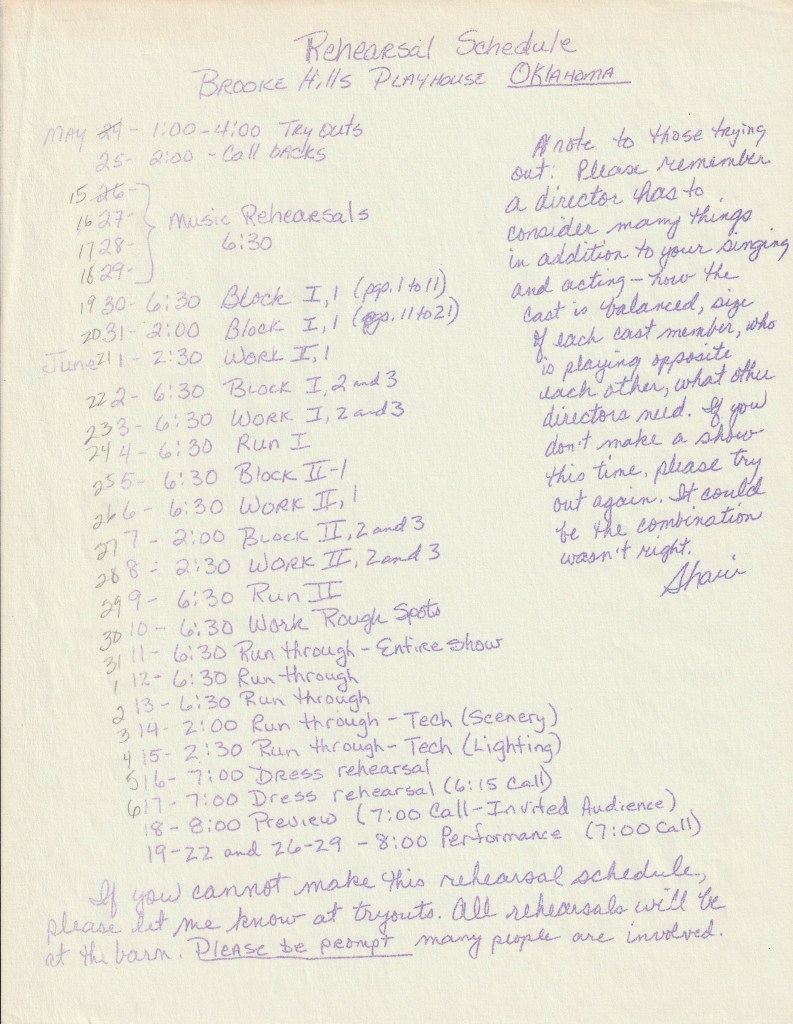 Rehearsal Schedule
Brooke Hills Playhouse Oklahoma
May 24 - 1:00 - 4:00 Try outs
25 - 2:00 - Call backs
15 26 -
16 27 -
17 28 -
18 29 -
Music Rehearsals
6:30
19 30 - 6:30 Block I, 1 (pgp. 1 to 11)
20 31 - 2:00 Block I, 1 (pgs. 11 to 21)
June 21 1 - 2:30 Work I, 1
22 2 - 6:30 Block I, 2 and 3
23 3 - 6:30 Work I, 2 and 3
24 4 - 6:30 Run I
25 5 - 6:30 Block II - 1
26 6 - 6:30 Work II, 1
27 7 - 2:00 Block II, 2 and 3
28 8 - 2:30 Work II, 2 and 3
29 9 - 6:30 Run II
30 10 - 6:30 Work Rough Spots
31 11 - 6:30 Run through - Entire show
1 12 - 6:30 Run through
2 13 - 6:30 Run through
3 14 - 2:00 Run through - Tech (Scenery)
4 15 - 2:30 Run through - Tech (Lighting)
5 16 - 7:00 Dress rehearsal
6 17 - 7:00 Dress rehearsal (6:15 Call)
18 - 8:00 Preview (7:00 Call - Invited Audience)
19-22 and 26-29 - 8:00 Performance (7:00 Call)
A note to those trying
out: Please remember
a director has to
consider many things
in addition to your singing
and acting - how the
cast is balanced, size
of each cast member, who
is playing opposite
each other, what other
directors need. If you
don't make a show
this time, please try
out again. It could
be the combination
wasn't right.
Shari
If you cannot make this rehearsal schedule,
please let me know at tryouts. All rehearsals will be
at the barn. Please be prompt many people are involved.